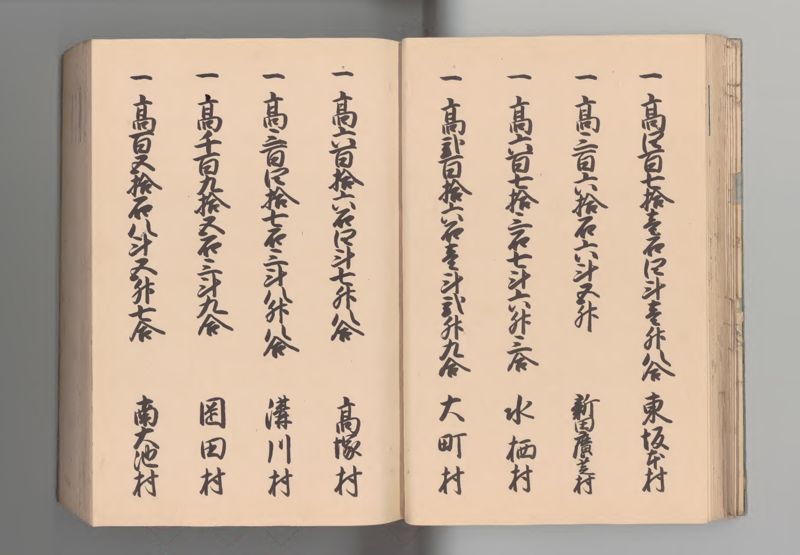 一 高四百七拾壱石四斗壱升八合 東坂本村
一 高三百六拾石六斗五升 新田廣芝村
一 高六百七拾三石七斗六升三合 水栖村
一 高弐百拾六石壱斗弐升九合 大町村
一 高六百拾六石四斗七升八合 高塚村
一 高三百四拾七石三斗八升八合 溝川村
一 高千百九拾五石三斗九合 岡田村
一 高百五拾石八斗五升七合 南大池村